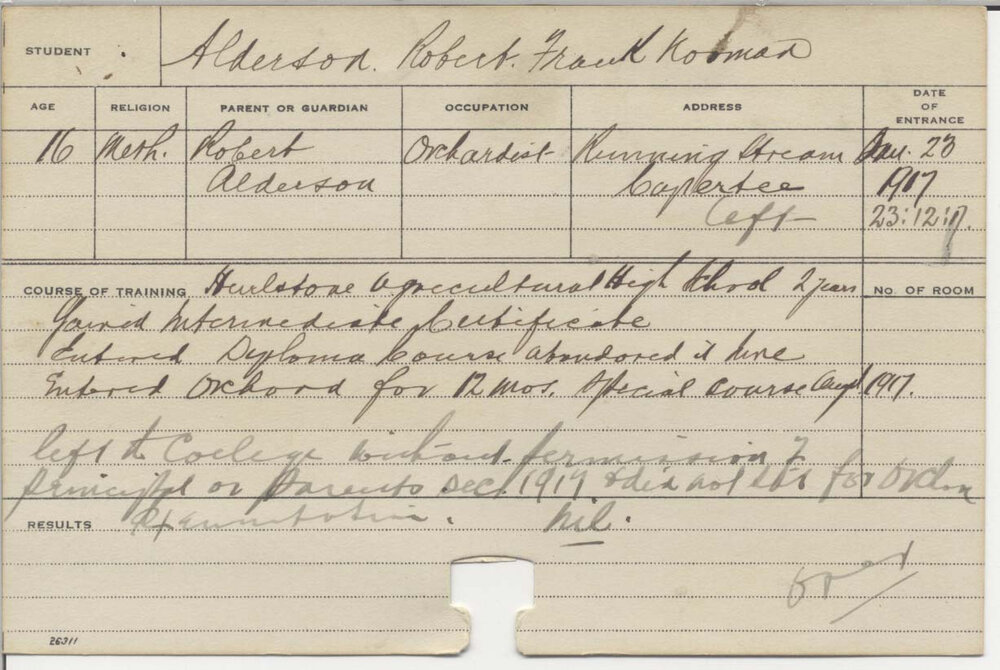 STUDENT Alderson. Robert. Frank Kooman
AGE RELIGION PARENT OR GUARDIAN OCCUPATION ADDRESS DATE OF ENTRANCE
16 Meth. Robert Orchardist Running Stream Jan. 23
Alderson Capertee 1917
Left 23:12:17.
COURSE OF TRAINING Hurlstone Agricultural High School 2 years No. OF ROOM
Gained Intermediate Certificate
Entered Diploma Course abandoned it June
Entered Orchard for 12 mos. Special course Augt 1917.
left the College without permission of
principal or parents Dec. 1917 & did not sit for Orchard
RESULTS Examination. Nil.
over
26311